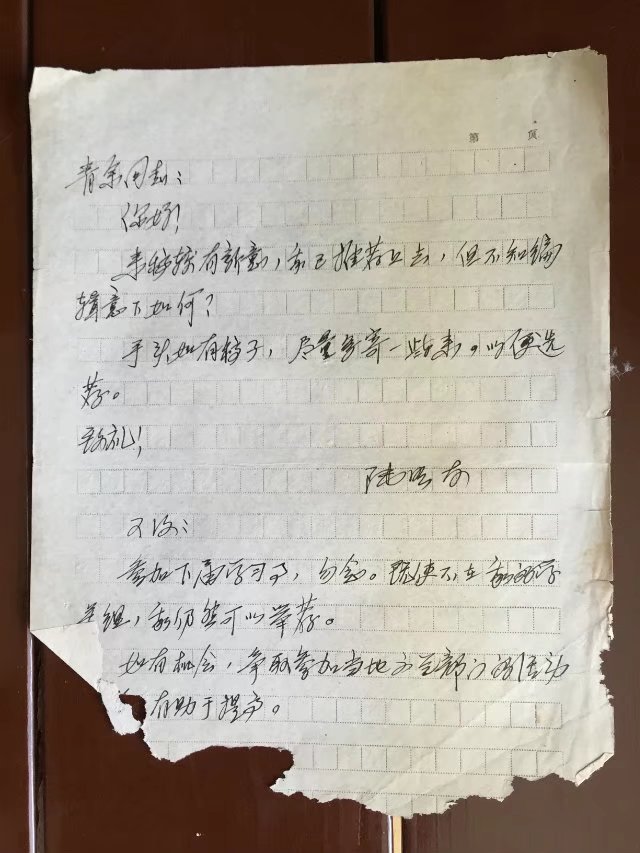 第 页
青原同志：
你好！
来稿较有新意，我已推荐上去，但不知编
辑意下如何？
手头如有稿子，尽量多寄一些来。以便选
荐。
致礼！
陆
又及：
参加下届学习了，勿念。既使不在我的学
组，我仍然可以举荐。
如有机会，争取参加当地文艺部门的活动
有助于提高。